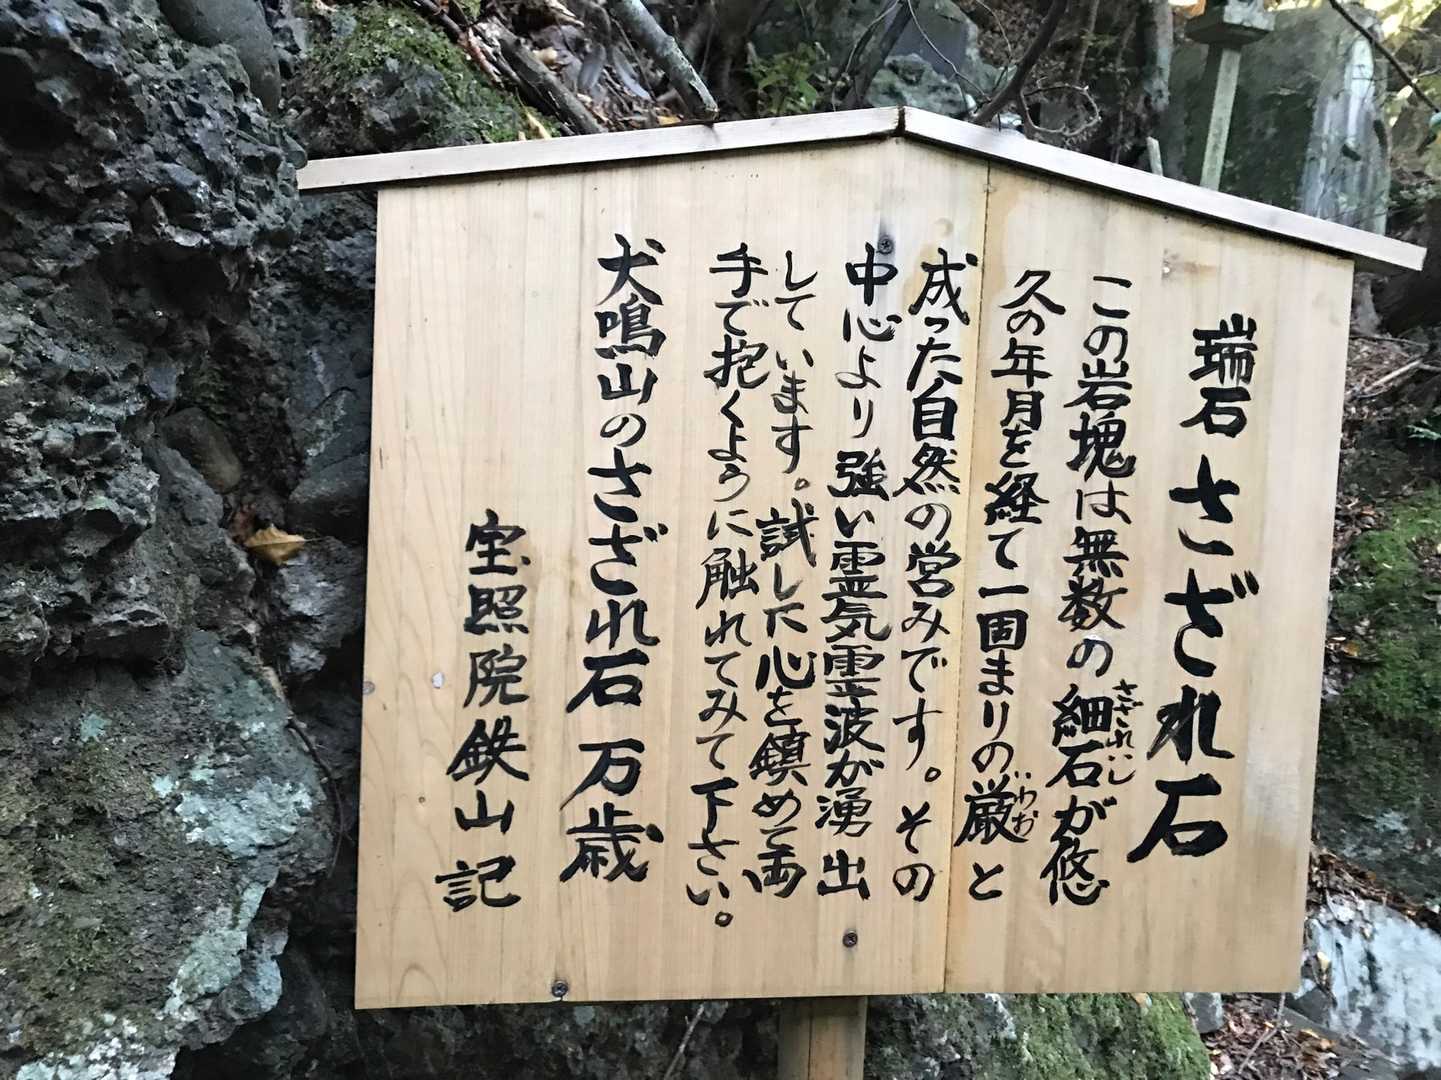 瑞石 さざれ石
この岩塊は無数の細石が悠
さざれいし
久の年月を経て一固まりの厳と
いわお
成った自然の営みです。その
中心より強い霊気霊波が湧出
しています。試した心を鎮めて両
手で抱くように触れてみて下さい。
犬鳴山のさざれ石 万歳
宝照院鉄山 記